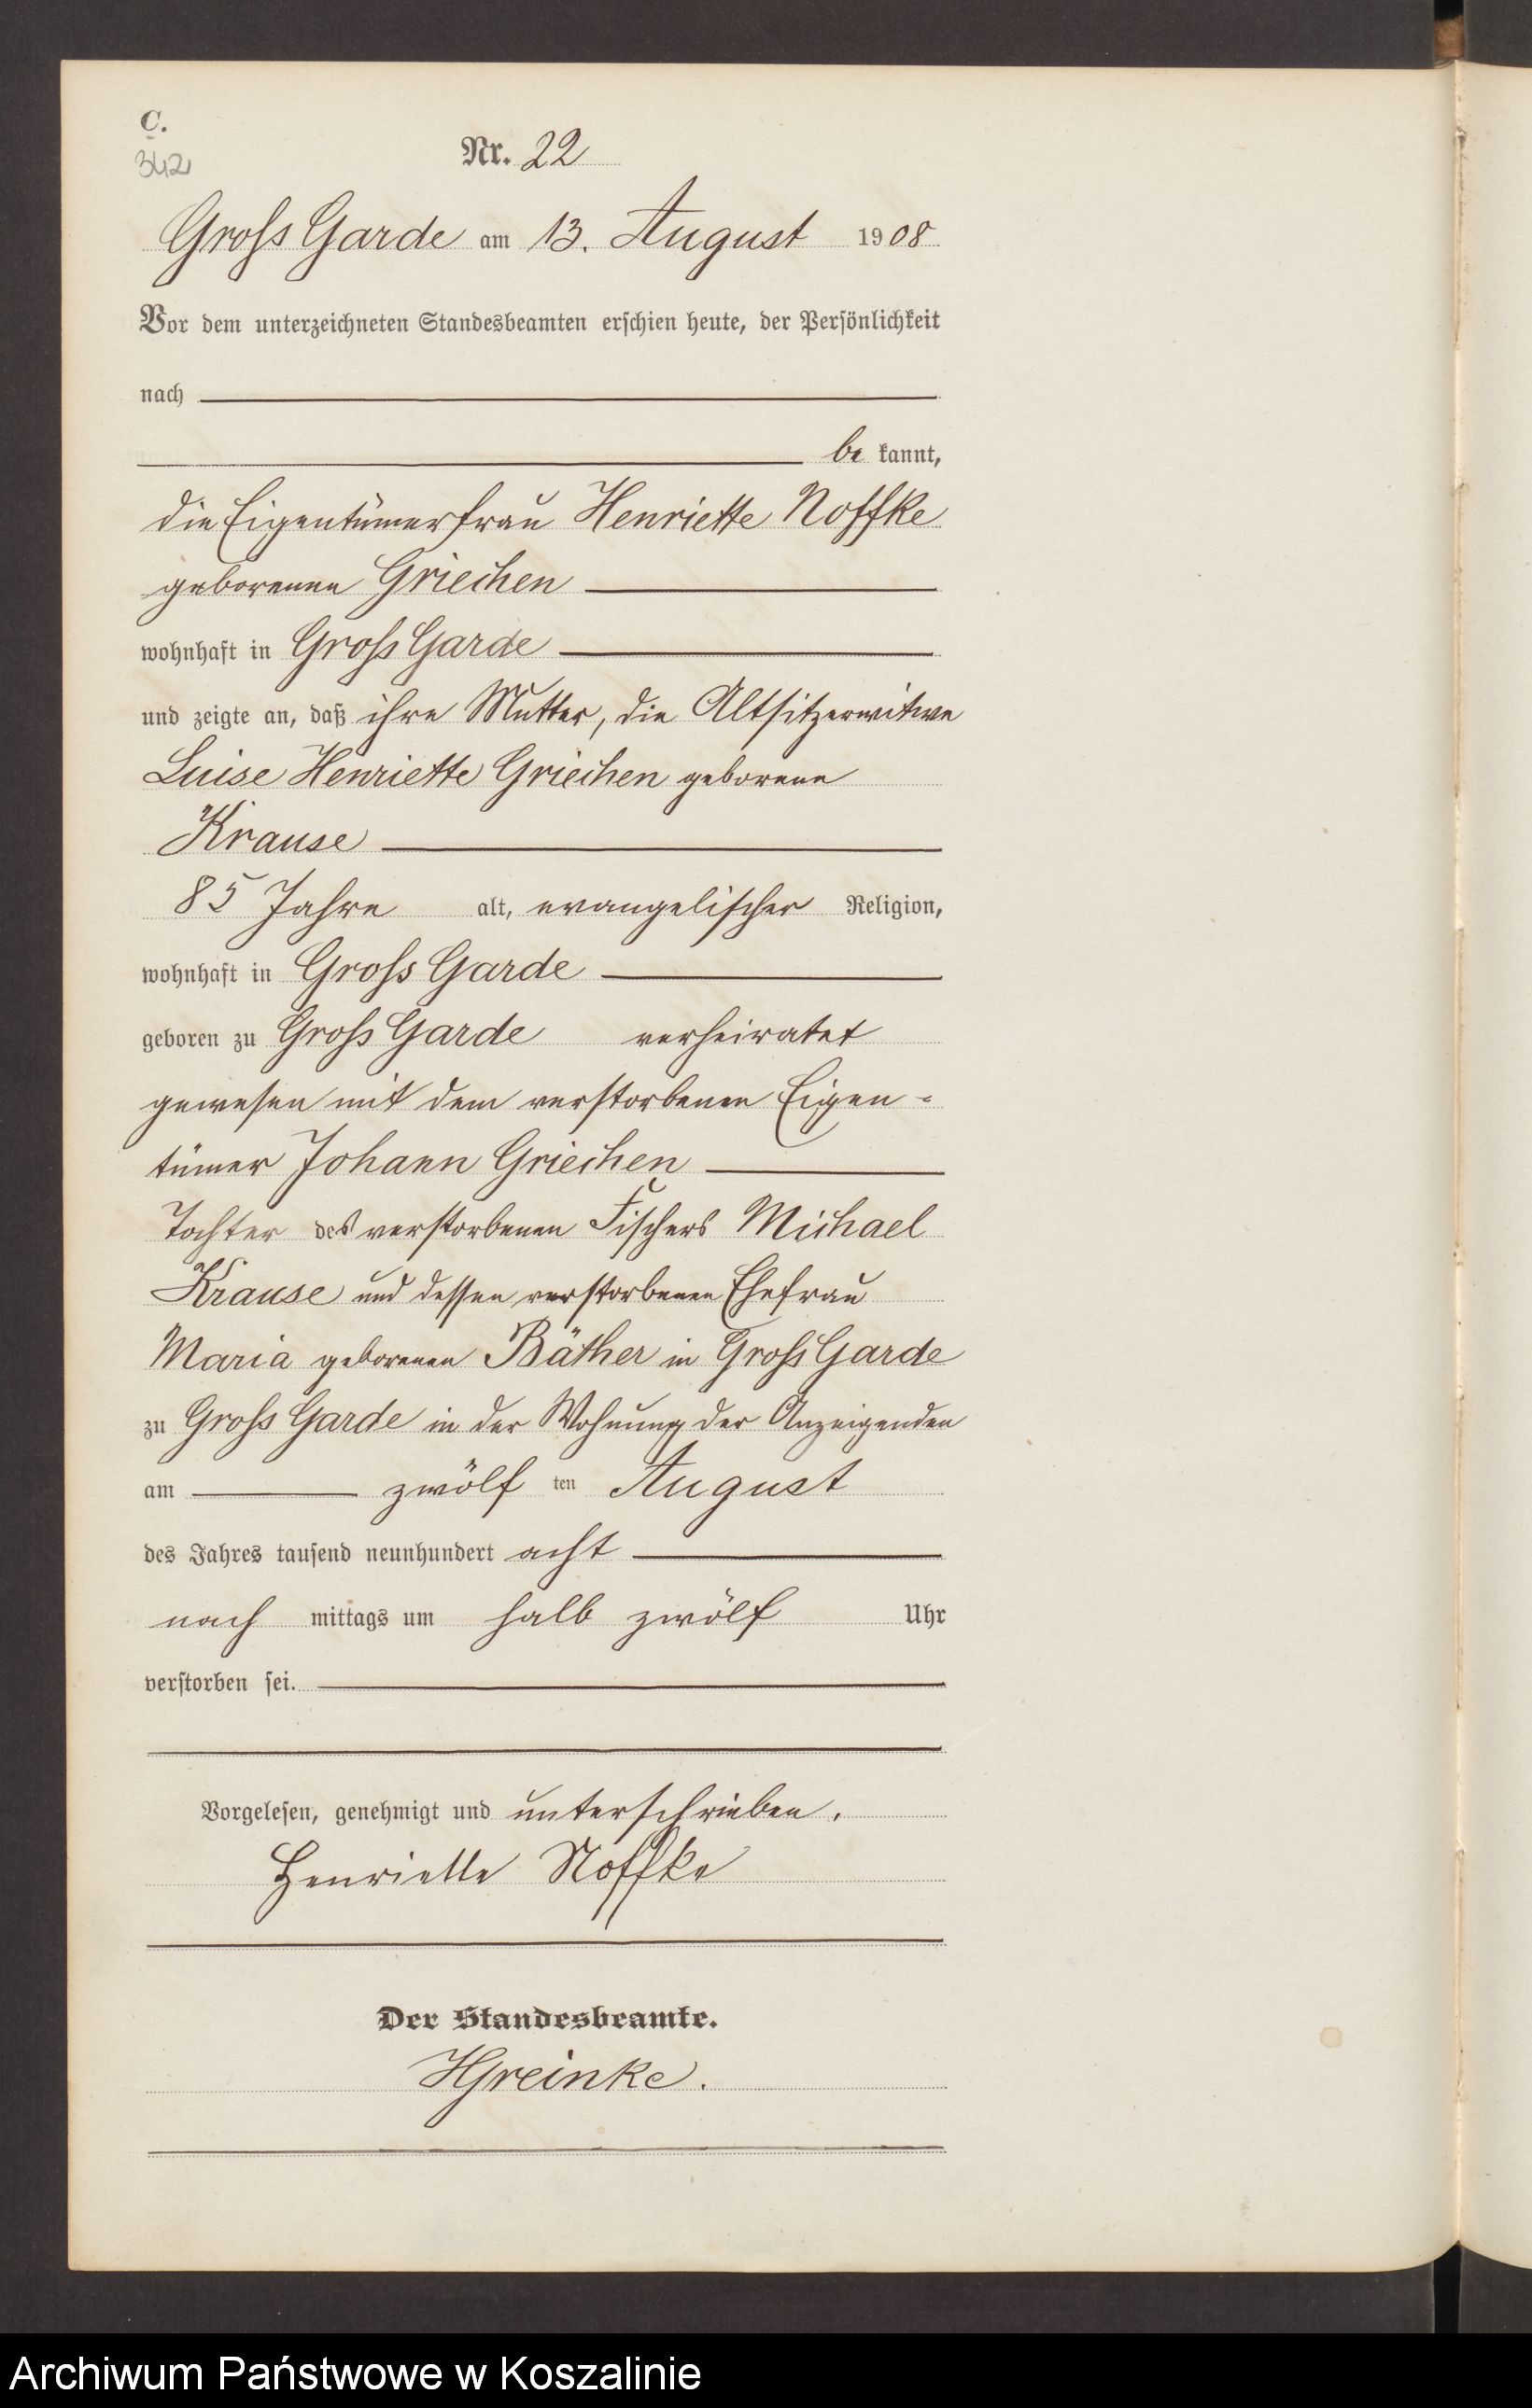 C.
342
Nr. 22
Groß Garde am 13. August 1908
Vor dem unterzeichneten Standesbeamten erschien heute, der Persönlichkeit
nach
be kannt,
die Eigentümerfrau Henriette Noffke
geborenen Griechen
wohnhaft in Groß Garde
und zeigte an, daß ihre Mutter, die Altsitzerwitwe
Luise Henriette Griechen geborene
Krause
85 Jahre alt, evangelischer Religion,
wohnhaft in Groß Garde
geboren zu Groß Garde verheiratet
gewesen mit dem verstorbenen Eigen=
tümer Johann Griechen
Tochter des verstorbenen Fischers Michael
Krause und dessen verstorbenen Ehefrau
Maria geborenen Bäther in Groß Garde
zu Groß Garde in der Wohnung der Anzeigenden
am zwölf ten August
des Jahres tausend neunhundert acht
nach mittags um halb zwölf Uhr
verstorben sei.
Vorgelesen, genehmigt und unterschrieben.
Henriette Noffke
Der Standesbeamte.
HGreinke.
Archiwum Państwowe w Koszalinie